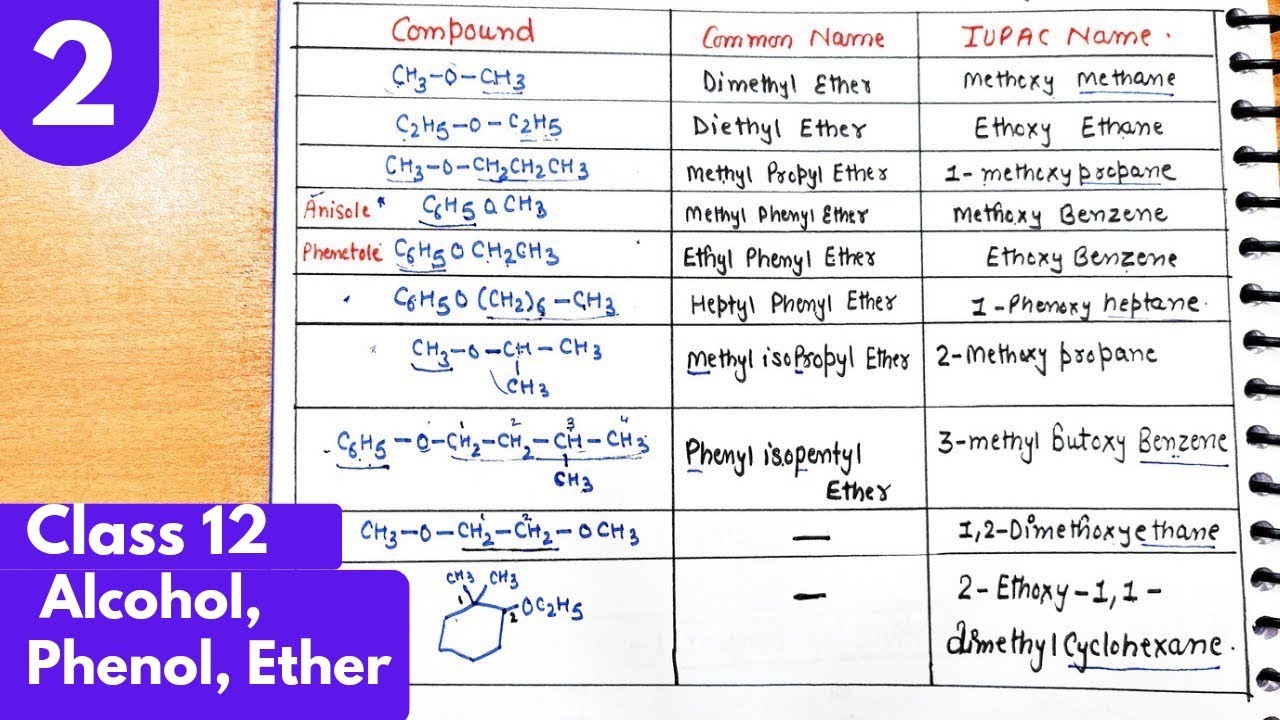 2
Compound Common Name IUPAC Name.
CH3-O-CH3 Dimethyl Ether methoxy methane
C2H5-O-C2H5 Diethyl Ether Ethoxy Ethane
CH3-O-CH2CH2CH3 Methyl Propyl Ether 1-methoxypropane
Anisole* C6H5OCH3 Methyl Phenyl Ether Methoxy Benzene
Phenetole C6H5OCH2CH3 Ethyl Phenyl Ether Ethoxy Benzene
C6H5O(CH2)6-CH3 Heptyl Phenyl Ether 1-Phenoxy heptane.
CH3-O-CH-CH3 methyl isoPropyl Ether 2-Methoxy propane
CH3
1 2 3 4
C6H5-O-CH2-CH2-CH-CH3 Phenyl isopentyl 3-methyl Butoxy Benzene
CH3 Ether
1 2
CH3-O-CH2-CH2-OCH3 — 1,2-Dimethoxyethane
CH3 CH3
1 2 OC2H5 — 2-Ethoxy-1,1-
dimethylCyclohexane.
Class 12
Alcohol,
Phenol, Ether